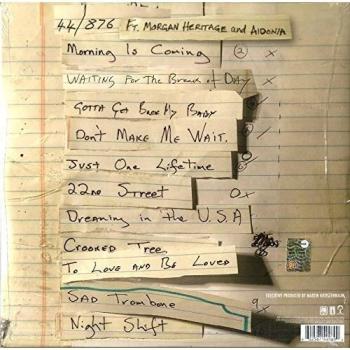 44/876 Ft. MORGAN HERITAGE and AIDONIA
Morning Is Coming
WAITING For The Break of DAY
GOTTA Get Back My BABY
DON'T MAKE ME WAIT.
Just One Lifetime
22nd Street
Dreaming in the U.S.A
CROOKED Tree
To LOVE AND BE LOVED
SAD Trombone
Night Shift
EXECUTIVE PRODUCED BY MARTIN KIERSZENBAUM